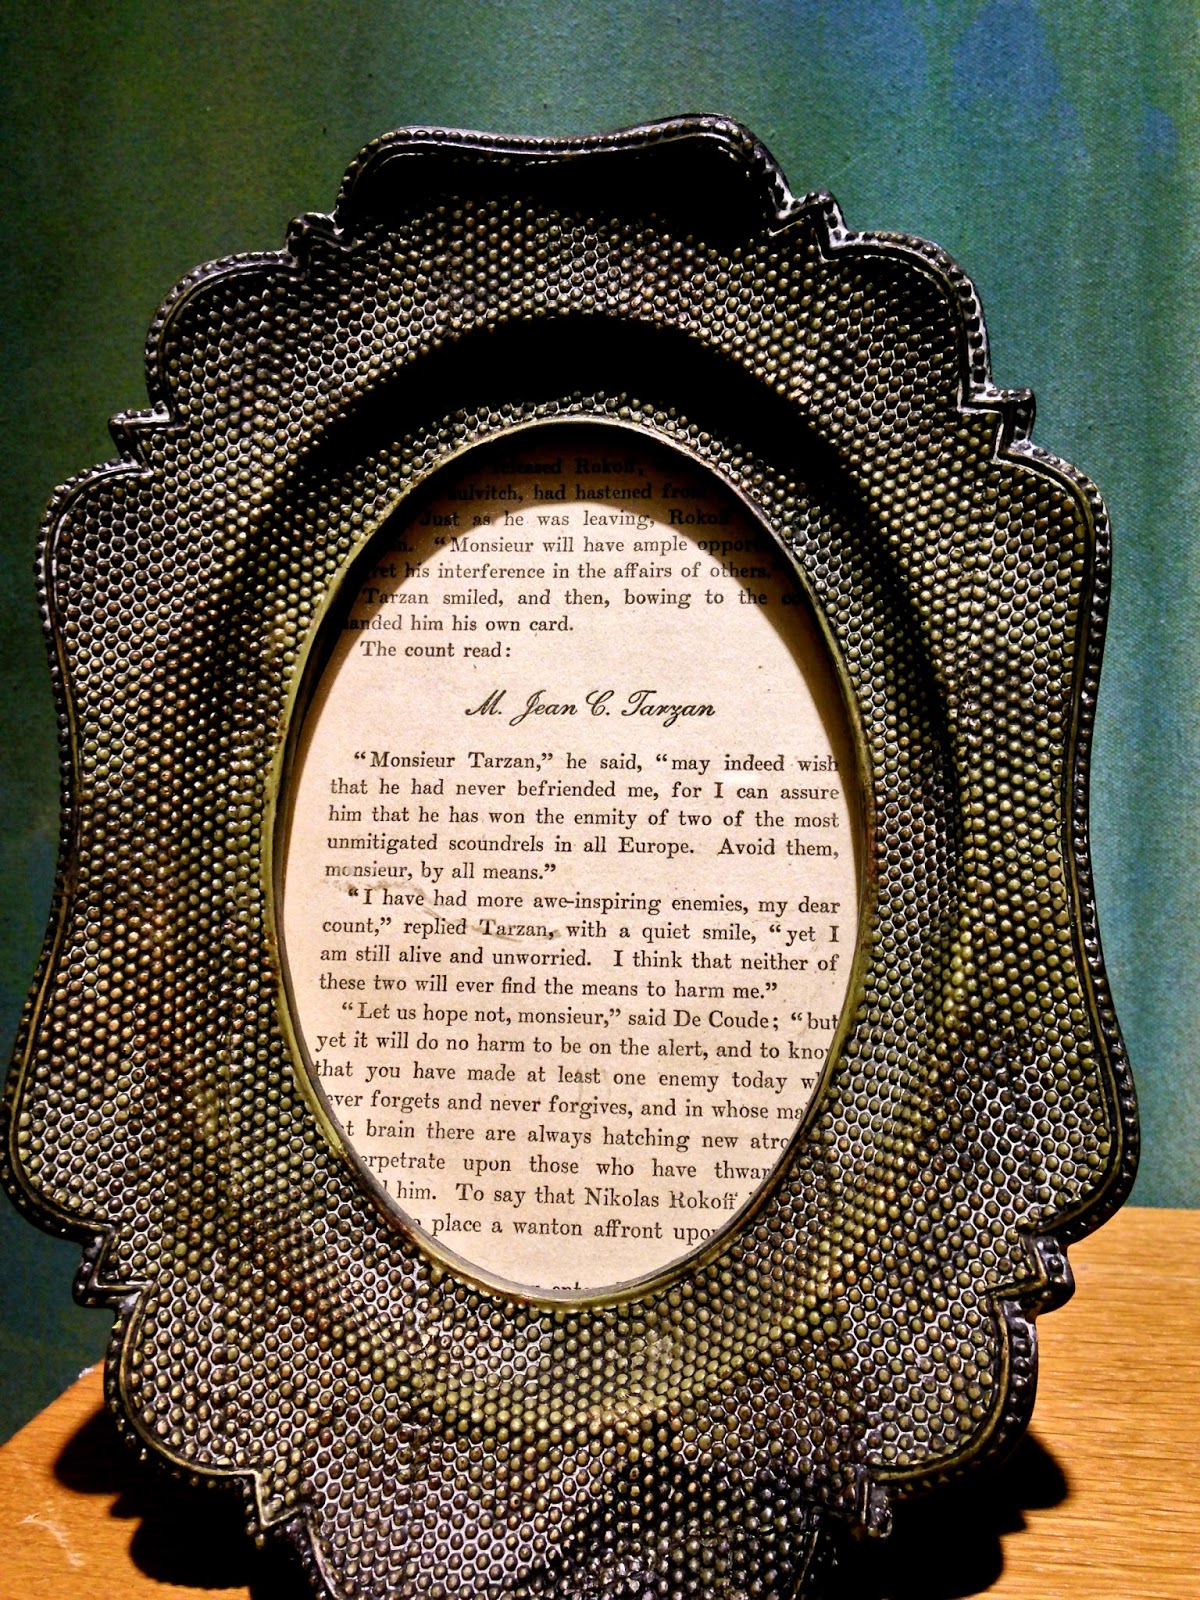 released Rokoff,
had hastened
Just as he was leaving,
"Monsieur will have ample
his interference in the affairs of others."
Tarzan smiled, and then, bowing to the
him his own card.
The count read:
M. Jean C. Tarzan
"Monsieur Tarzan," he said, "may indeed wish
that he had never befriended me, for I can assure
him that he has won the enmity of two of the most
unmitigated scoundrels in all Europe. Avoid them,
monsieur, by all means."
"I have had more awe-inspiring enemies, my dear
count," replied Tarzan, with a quiet smile, "yet I
am still alive and unworried. I think that neither of
these two will ever find the means to harm me."
"Let us hope not, monsieur," said De Coude; "but
yet it will do no harm to be on the alert, and to
that you have made at least one enemy today
forgets and never forgives, and in whose
brain there are always hatching new
upon those who have
him. To say that Nikolas Rokoff
place a wanton affront